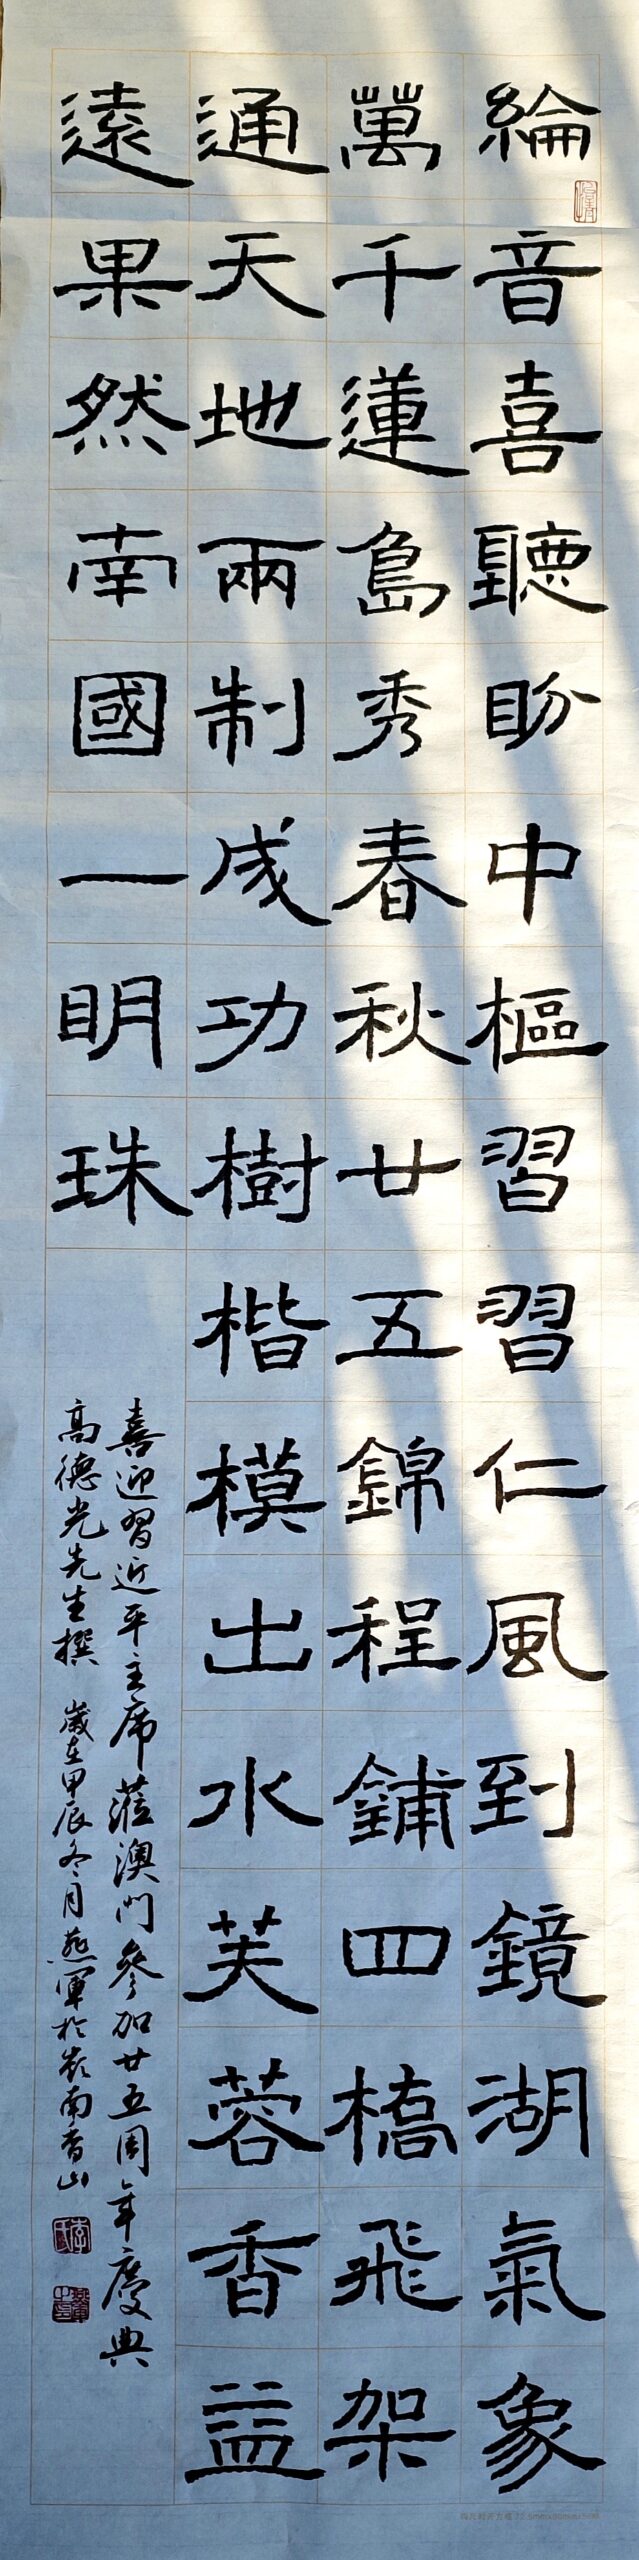 綸音喜聽盼中樞習習仁風到鏡湖氣象
萬千蓮島秀春秋廿五錦程鋪四橋飛架
通天地兩制成功樹楷模出水芙蓉香益
遠果然南國一明珠
喜迎習近平主席蒞澳門參加廿五周年慶典
高德光先生撰 歲在甲辰冬月燕軍於嶺南香山